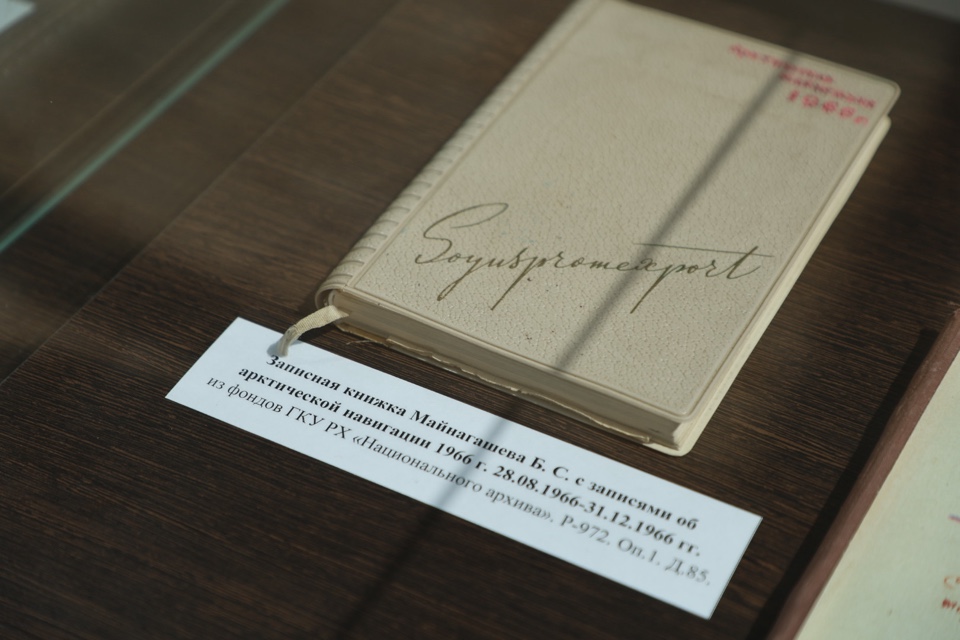 арктическая
навигация
1966 г.
Soyuspromexport
Записная книжка Майнагашева Б. С. с записями об
арктической навигации 1966 г. 28.08.1966-31.12.1966 гг.
из фондов ГКУ РХ «Национального архива». Р-972. Оп.1. Д.85.